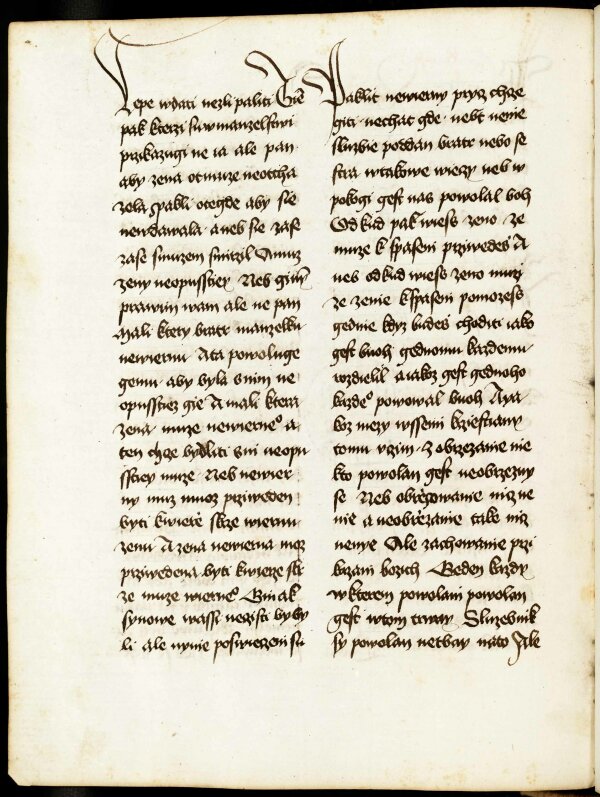 Lepe wdati nezli paliti Giē
pak kterzi su w manzelstwi
przikazugi ne ia ale pan
aby zena ot muze neotcha
zela Pakli otegde aby sie
newdawala a neb sie zase
zase s muzem smirzil A muz
zeny neopusstiey Neb ginym
prawim wam ale ne pan
Mali ktery bratr manzelku
newiernu A ta powoluge
gemu aby byla s nim ne
opusstiey gie A mali ktera
zena muze newierneo a
ten chze bydliti s ni neopu
sstiey muze Neb newier
ny muz muoz przieweden
byti k wierze skrze wiernu
zenu A zena newierna moz
przywedena byti k wierze skr
ze muze wierneo Ginak
synowe wassi neczisti by by
li ale nynie poswieczeni su
Paklit newierny prycz chze
giti nechat gde nebt nenie
sluzbie poddan bratr nebo se
stra w takowe wieczy neb w
pokogi gest nas powolal boh
Odkud pak wiess zeno ze
muze k spaseni prziwedes A
neb odkud wiess zeno muzi
ze zenie k spaseni pomozess
gednie kdyz budes choditi iako
gest buoh gednomu kazdemu
rozdielil a iakoz gest gednoho
kazdeo powowal buoh A ya
koz mezy wssemi krziestiany
tomu uczim Z obrzezanie nie
kto powolan gest neobrzezuy
se Neb obrzezowanie nicz ne
nie a neobrzezanie take nicz
nenye Ale zachowanie przi
kazani bozich Geden kazdy
w kterem powolani powolan
gest w tom trway Sluzebnik
sy powolan netbay nato Ale